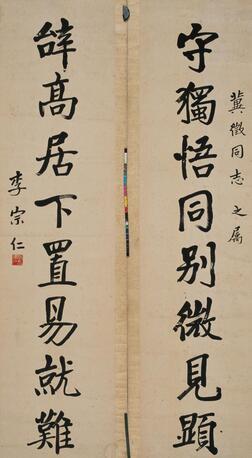 冀徵同志之属
守獨悟同别微見顕
辞高居下置易就難
李宗仁